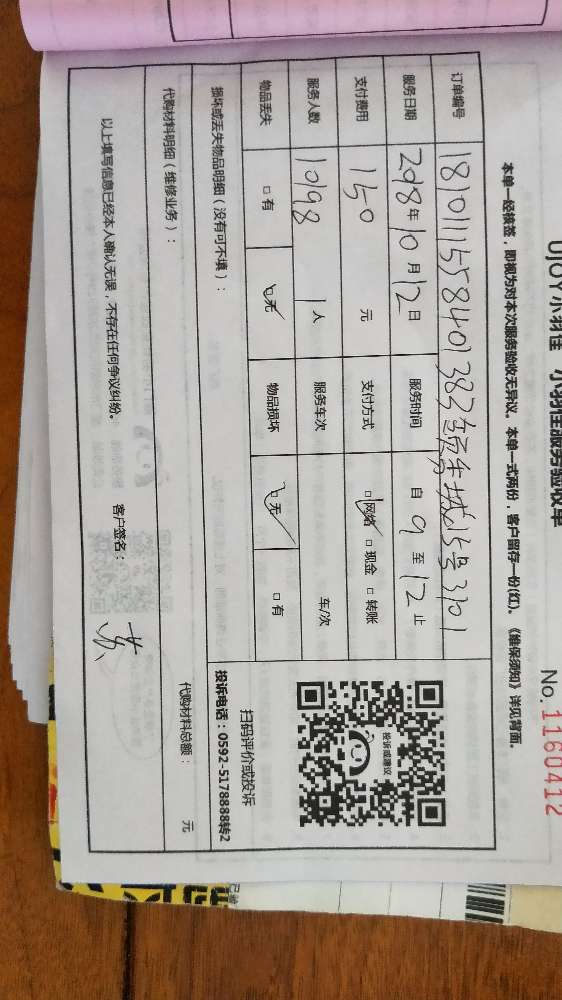 UJOY小羽佳 小羽佳服务验收单
No. 1160412
本单一经核签，即视为对本次服务验收无异议。本单一式两份，客户留存一份(红)。《维保须知》详见背面。
订单编号 1810111558401383 15号3101
服务日期 2018年10月12日 服务时间 自 9 至 12 止
支付费用 150 元 支付方式 □网络 □现金 □转账
服务人数 1098 1人 服务车次 车/次
物品丢失 □有 □无 物品损坏 □无 □有
投诉或建议
扫码评价或投诉
投诉电话：0592-5178888转2
损坏或丢失物品明细（没有可不填）：
代购材料明细（维修业务）： 代购材料总额： 元
以上填写信息已经本人确认无误，不存在任何争议纠纷。 客户签名： 苏